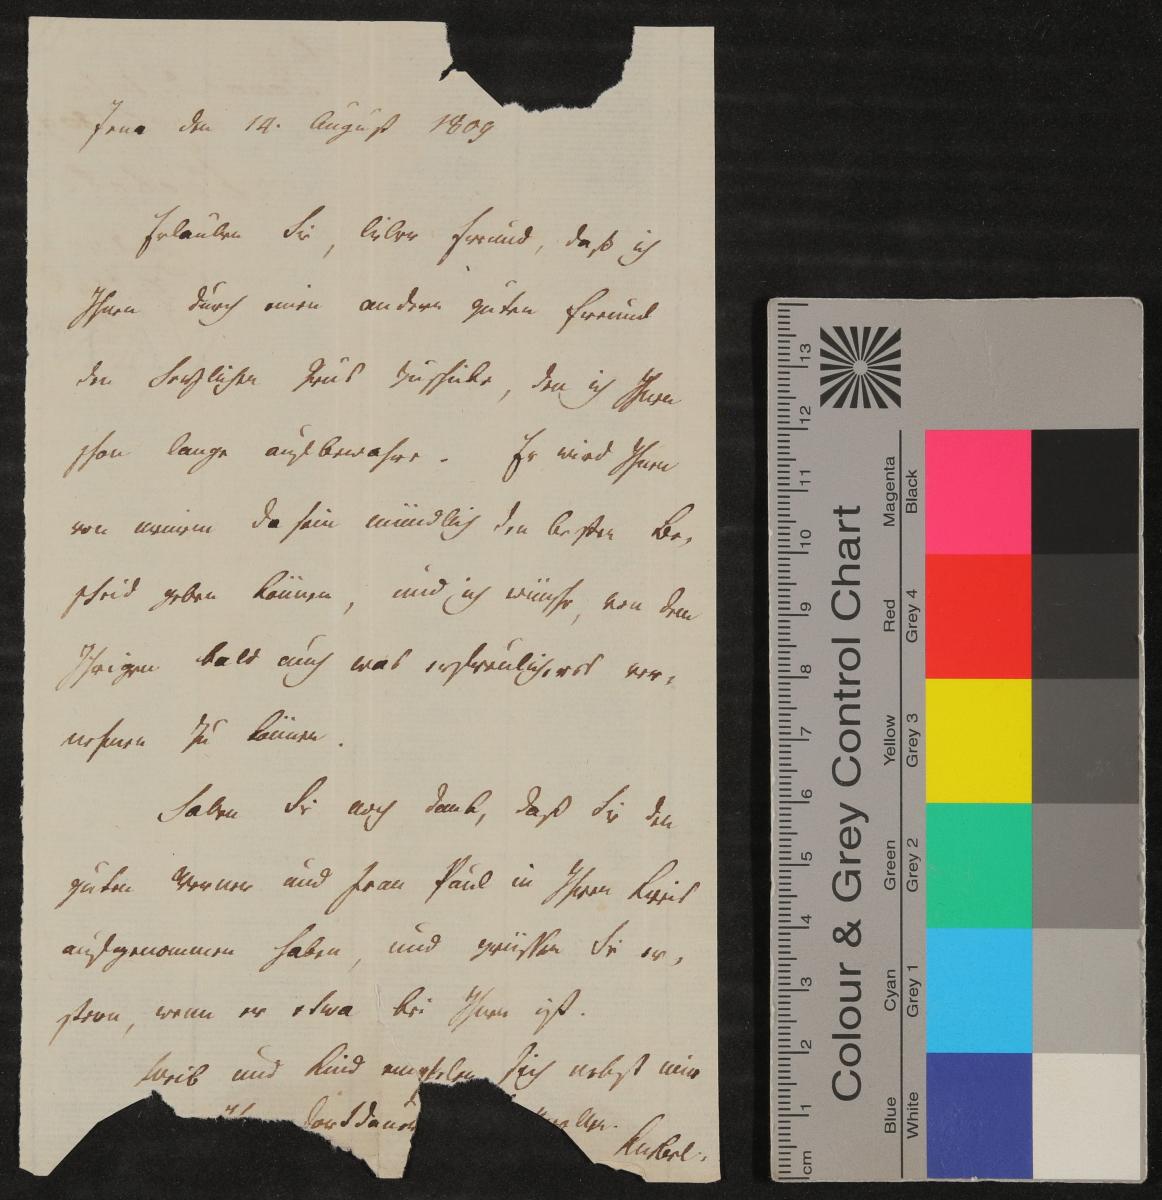 Jena den 14. August 1809
Erlauben Sie, lieber Freund, daß ich
Ihnen durch einen andern guten Freund
den herzlichen Grus zuschicke, den ich Ihnen
schon lange aufbewahre. Er wird Ihnen
von meinem Dasein mündlich den besten Be-
scheid geben können, und ich wünsche, von dem
Ihrigen bald auch was erfreuliches ver-
nehmen zu können.
Haben Sie noch Dank, daß Sie den
guten Werner und Frau Paul in Ihren Kreis
aufgenommen haben, und grüssen Sie er-
stern, wenn er etwa bei Ihnen ist.
Weib und Kind empfelen sich nebst mir
Knebel.
Colour & Grey Control Chart
Blue Cyan Green Yellow Red Magenta
White Grey 1 Grey 2 Grey 3 Grey 4 Black
cm 1 2 3 4 5 6 7 8 9 10 11 12 13